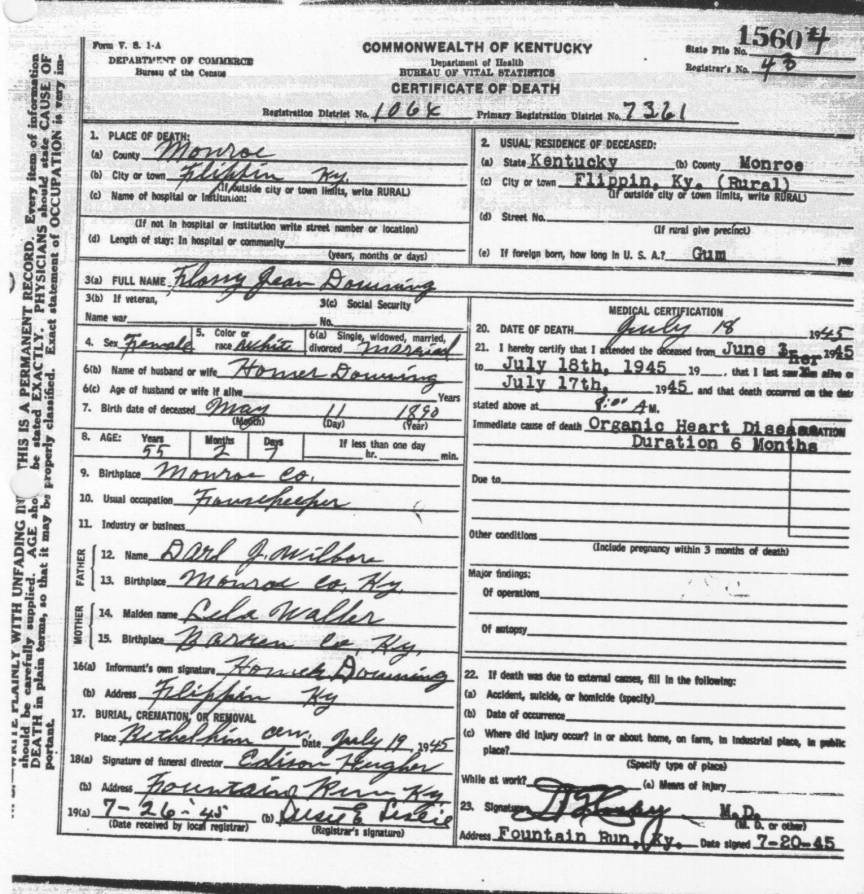 Form V. S. 1-A
DEPARTMENT OF COMMERCE
Bureau of the Census
COMMONWEALTH OF KENTUCKY
Department of Health
BUREAU OF VITAL STATISTICS
CERTIFICATE OF DEATH
State File No. 15604
Registrar's No. 43
Registration District No. 106X Primary Registration District No. 7361
1. PLACE OF DEATH:
(a) County Monroe
(b) City or town Flippin Ky.
(If outside city or town limits, write RURAL)
(c) Name of hospital or institution:
(If not in hospital or institution write street number or location)
(d) Length of stay: In hospital or community
(years, months or days)
2. USUAL RESIDENCE OF DECEASED:
(a) State Kentucky (b) County Monroe
(c) City or town Flippin, Ky. (Rural)
(If outside city or town limits, write RURAL)
(d) Street No.
(If rural give precinct)
(e) If foreign born, how long in U. S. A.? Gum year
3(a) FULL NAME Flossy Jean Downing
3(b) If veteran, 3(c) Social Security
Name war No.
4. Sex Female 5. Color or race White 6(a) Single, widowed, married, divorced Married
6(b) Name of husband or wife Homer Downing
6(c) Age of husband or wife if alive Years
7. Birth date of deceased May 11 1890
(Month) (Day) (Year)
8. AGE: Years Months Days If less than one day
55 2 7 hr. min.
9. Birthplace Monroe Co.
10. Usual occupation Housekeeper
11. Industry or business
FATHER
12. Name Darl J. Wilbore
13. Birthplace Monroe Co, Ky.
MOTHER
14. Maiden name Lela Waller
15. Birthplace Barren Co, Ky.
16(a) Informant's own signature Homer Downing
(b) Address Flippin Ky
17. BURIAL, CREMATION, OR REMOVAL
Place Cem. Date July 19, 1945
18(a) Signature of funeral director Edison
(b) Address Fountain Run Ky.
19(a) 7-26-45 (b) Susie E Leslie
(Date received by local registrar) (Registrar's signature)
MEDICAL CERTIFICATION
20. DATE OF DEATH July 18 1945
21. I hereby certify that I attended the deceased from June 3, 1945
to July 18th, 1945 19 , that I last saw her alive on
July 17th, 1945, and that death occurred on the date
stated above at 8:00 A M.
Immediate cause of death Organic Heart Disease
Duration 6 Months
Due to
Other conditions
(Include pregnancy within 3 months of death)
Major findings:
Of operations
Of autopsy
22. If death was due to external causes, fill in the following:
(a) Accident, suicide, or homicide (specify)
(b) Date of occurrence
(c) Where did injury occur? in or about home, on farm, in industrial place, in public
place?
(Specify type of place)
While at work? (e) Means of injury
23. Signature M.D.
(M. D. or other)
Address Fountain Run, Ky. Date signed 7-20-45
THIS IS A PERMANENT RECORD. Every item of information
be stated EXACTLY. PHYSICIANS should state CAUSE OF
properly classified. Exact statement of OCCUPATION is very im-
WRITE PLAINLY WITH UNFADING
should be carefully supplied. AGE
DEATH in plain terms, so that it may be
portant.